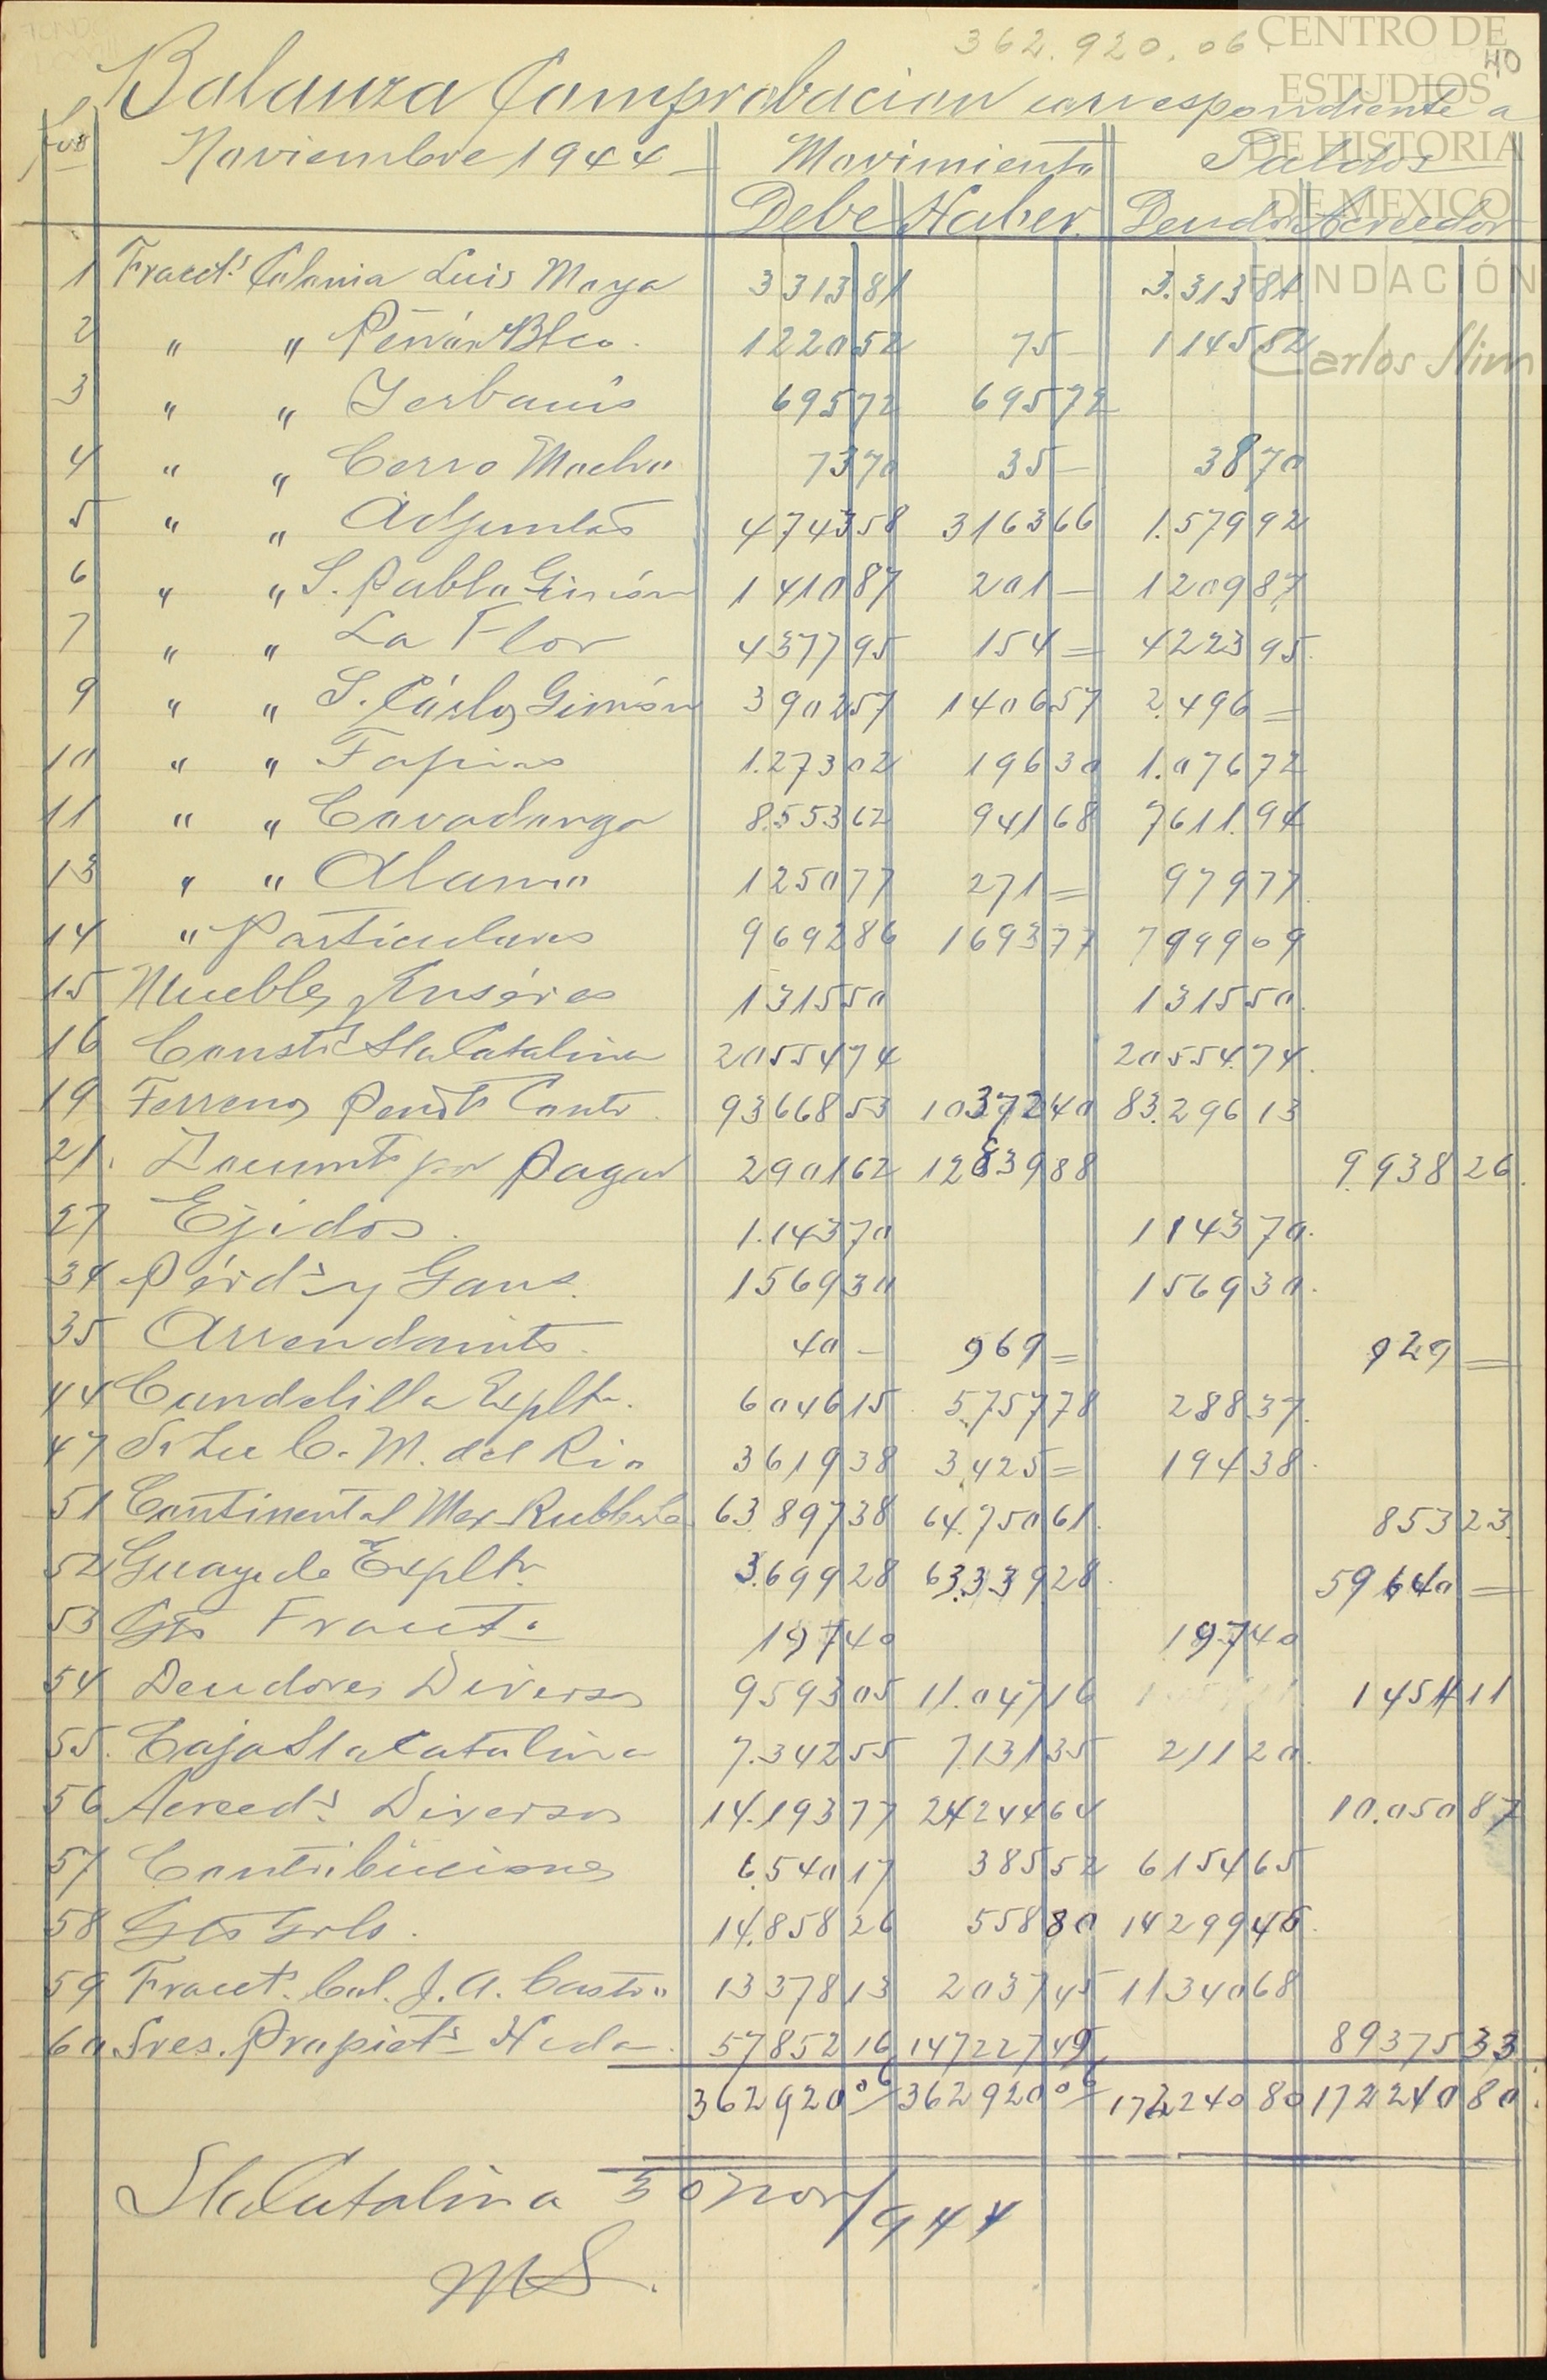 362.920.06
CENTRO DE
ESTUDIOS
DE HISTORIA
DE MEXICO
FUNDACIÓN
Carlos Slim
40
Balanza Comprobacion correspondiente a
Noviembre 1944 Movimiento Saldos
Debe Haber Deudor Acreedor
1 Fracct.s Colonia Luis Moya 3313 81 3.313 81
2 " " Peñón Blco. 1220 52 75 — 1145 52
3 " " Yerbanis 695 72 695 72
4 " " Cerro Macho 73 70 35 — 38 70
5 " " Adjuntas 4743 58 3163 66 1.579 92
6 " " S. Pablo Girión 1410 87 201 — 1209 87
7 " " La Flor 4377 95 154 = 4223 95
9 " " S. Cárlos Girión 3902 57 1406 57 2.496 =
10 " " Tapias 1.273 02 196 30 1.076 72
11 " " Covadonga 8.553 62 941 68 7611.94
13 " " Alamo 1250 77 271 = 979 77
14 " Particulares 9692 86 1693 77 7999 09
15 Muebles y Enséres 1315 50 1315 50
16 Const.s Sta Catalina 20554 74 20554.74
19 Terrenos Pendts Contr. 93668 53 10372 40 83.296 13
21. Documts por Pagar 2901 62 12839 88 9.938 26
27 Ejidos 1.143 70 1143 70
34 Pérd.s y Gans. 1569 30 1569 30
35 Arrendamits. 40 — 969 = 929 =
44 Candelilla Explt. 6046 15 5.757 78 288.37
47 Sr Lic C. M. del Rio 3619 38 3,425 = 194 38
51 Continental Mex Rubber Co 63.897 38 64.750 61 853 23
52 Guayule Explt. 3.699 28 63.339 28 59640 =
53 Gts Fracct. 197 40 197 40
54 Deudores Diversos 9593 05 11.047 16 1454 11
55. Caja Sta Catalina 7.342 55 7131 35 211 20
56 Acreed.s Diversos 14.193 77 24244 64 10.050 87
57 Contribuciones 6.540 17 385 52 6154 65
58 Gts Grls. 14.858 26 558 80 14299 46
59 Fracct. Col. J. A. Castro 13378 13 2037 45 11340 68
60 Sres. Propiets Hcda. 57852 16 147227 49 89375 33
362920 06 362920 06 172240 80 172240 80
Sta Catalina 30 Nov/1944
MS.